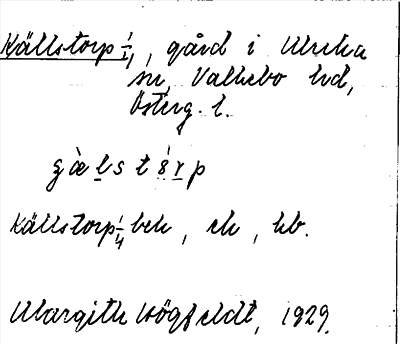 Källstorp 1/4, gård i Ulrika
sn, Valkebo hd,
Österg. l.
gὰlstèrp
Källstorp 1/4 beh, ek, hb.
Margith Högfeldt, 1929.